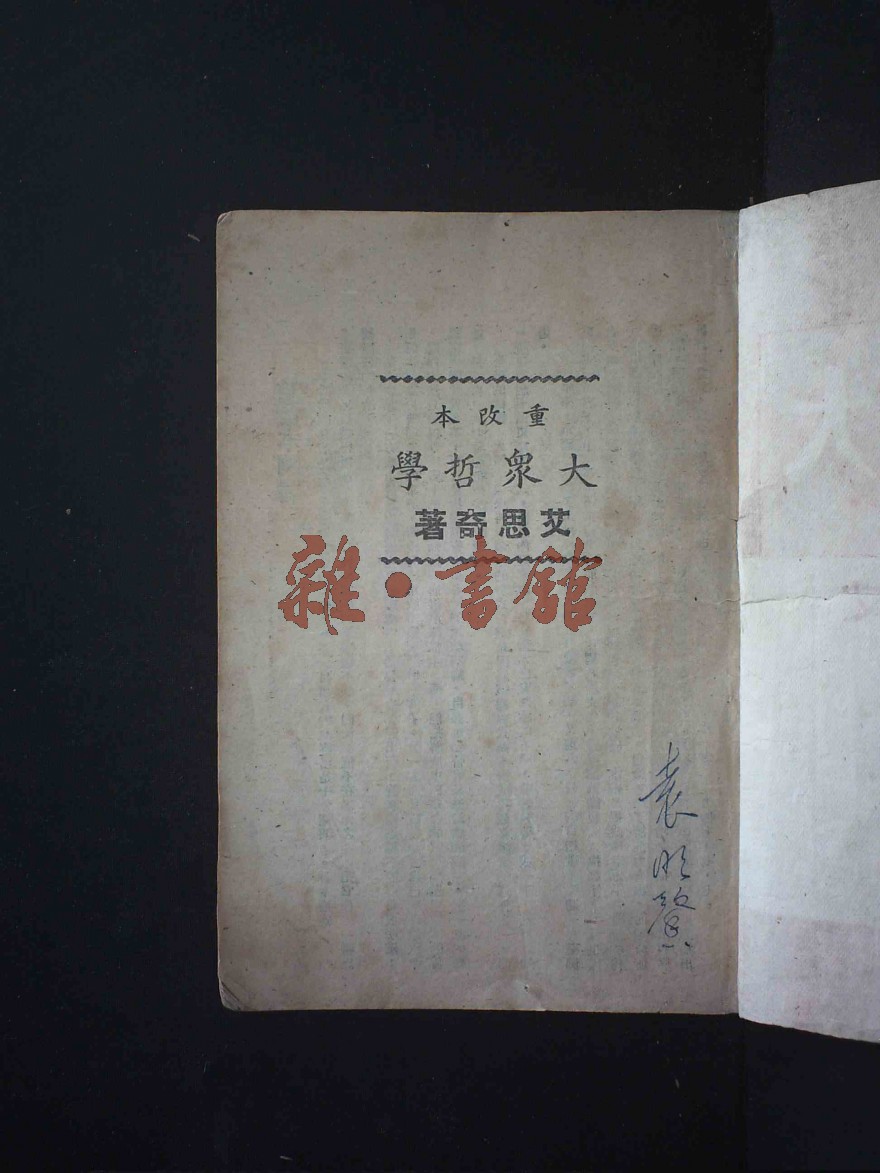 重改本
大衆哲學
艾思奇著
雜·書館
袁